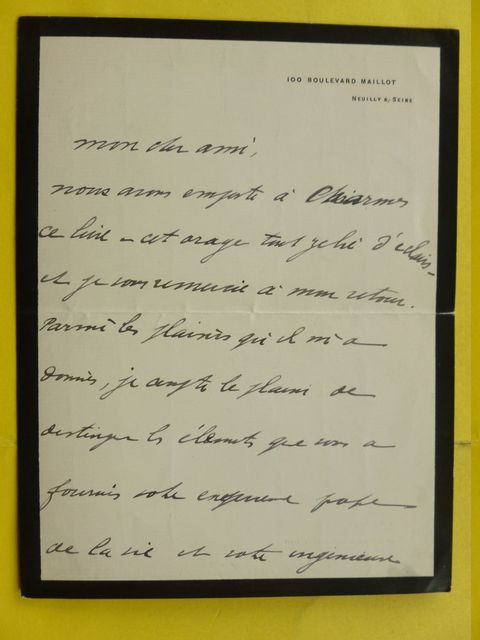 100 BOULEVARD MAILLOT
NEUILLY S/ SEINE
mon cher ami,
nous avons emporté à Charmes
ce livre – cet orage tout zébré d'éclairs –
et je vous remercie à mon retour.
Parmi les plaisirs qu'il m'a
donnés, je compte le plaisir de
distinguer les éléments que vous a
fournis votre expérience propre
de la vie et votre ingénieuse